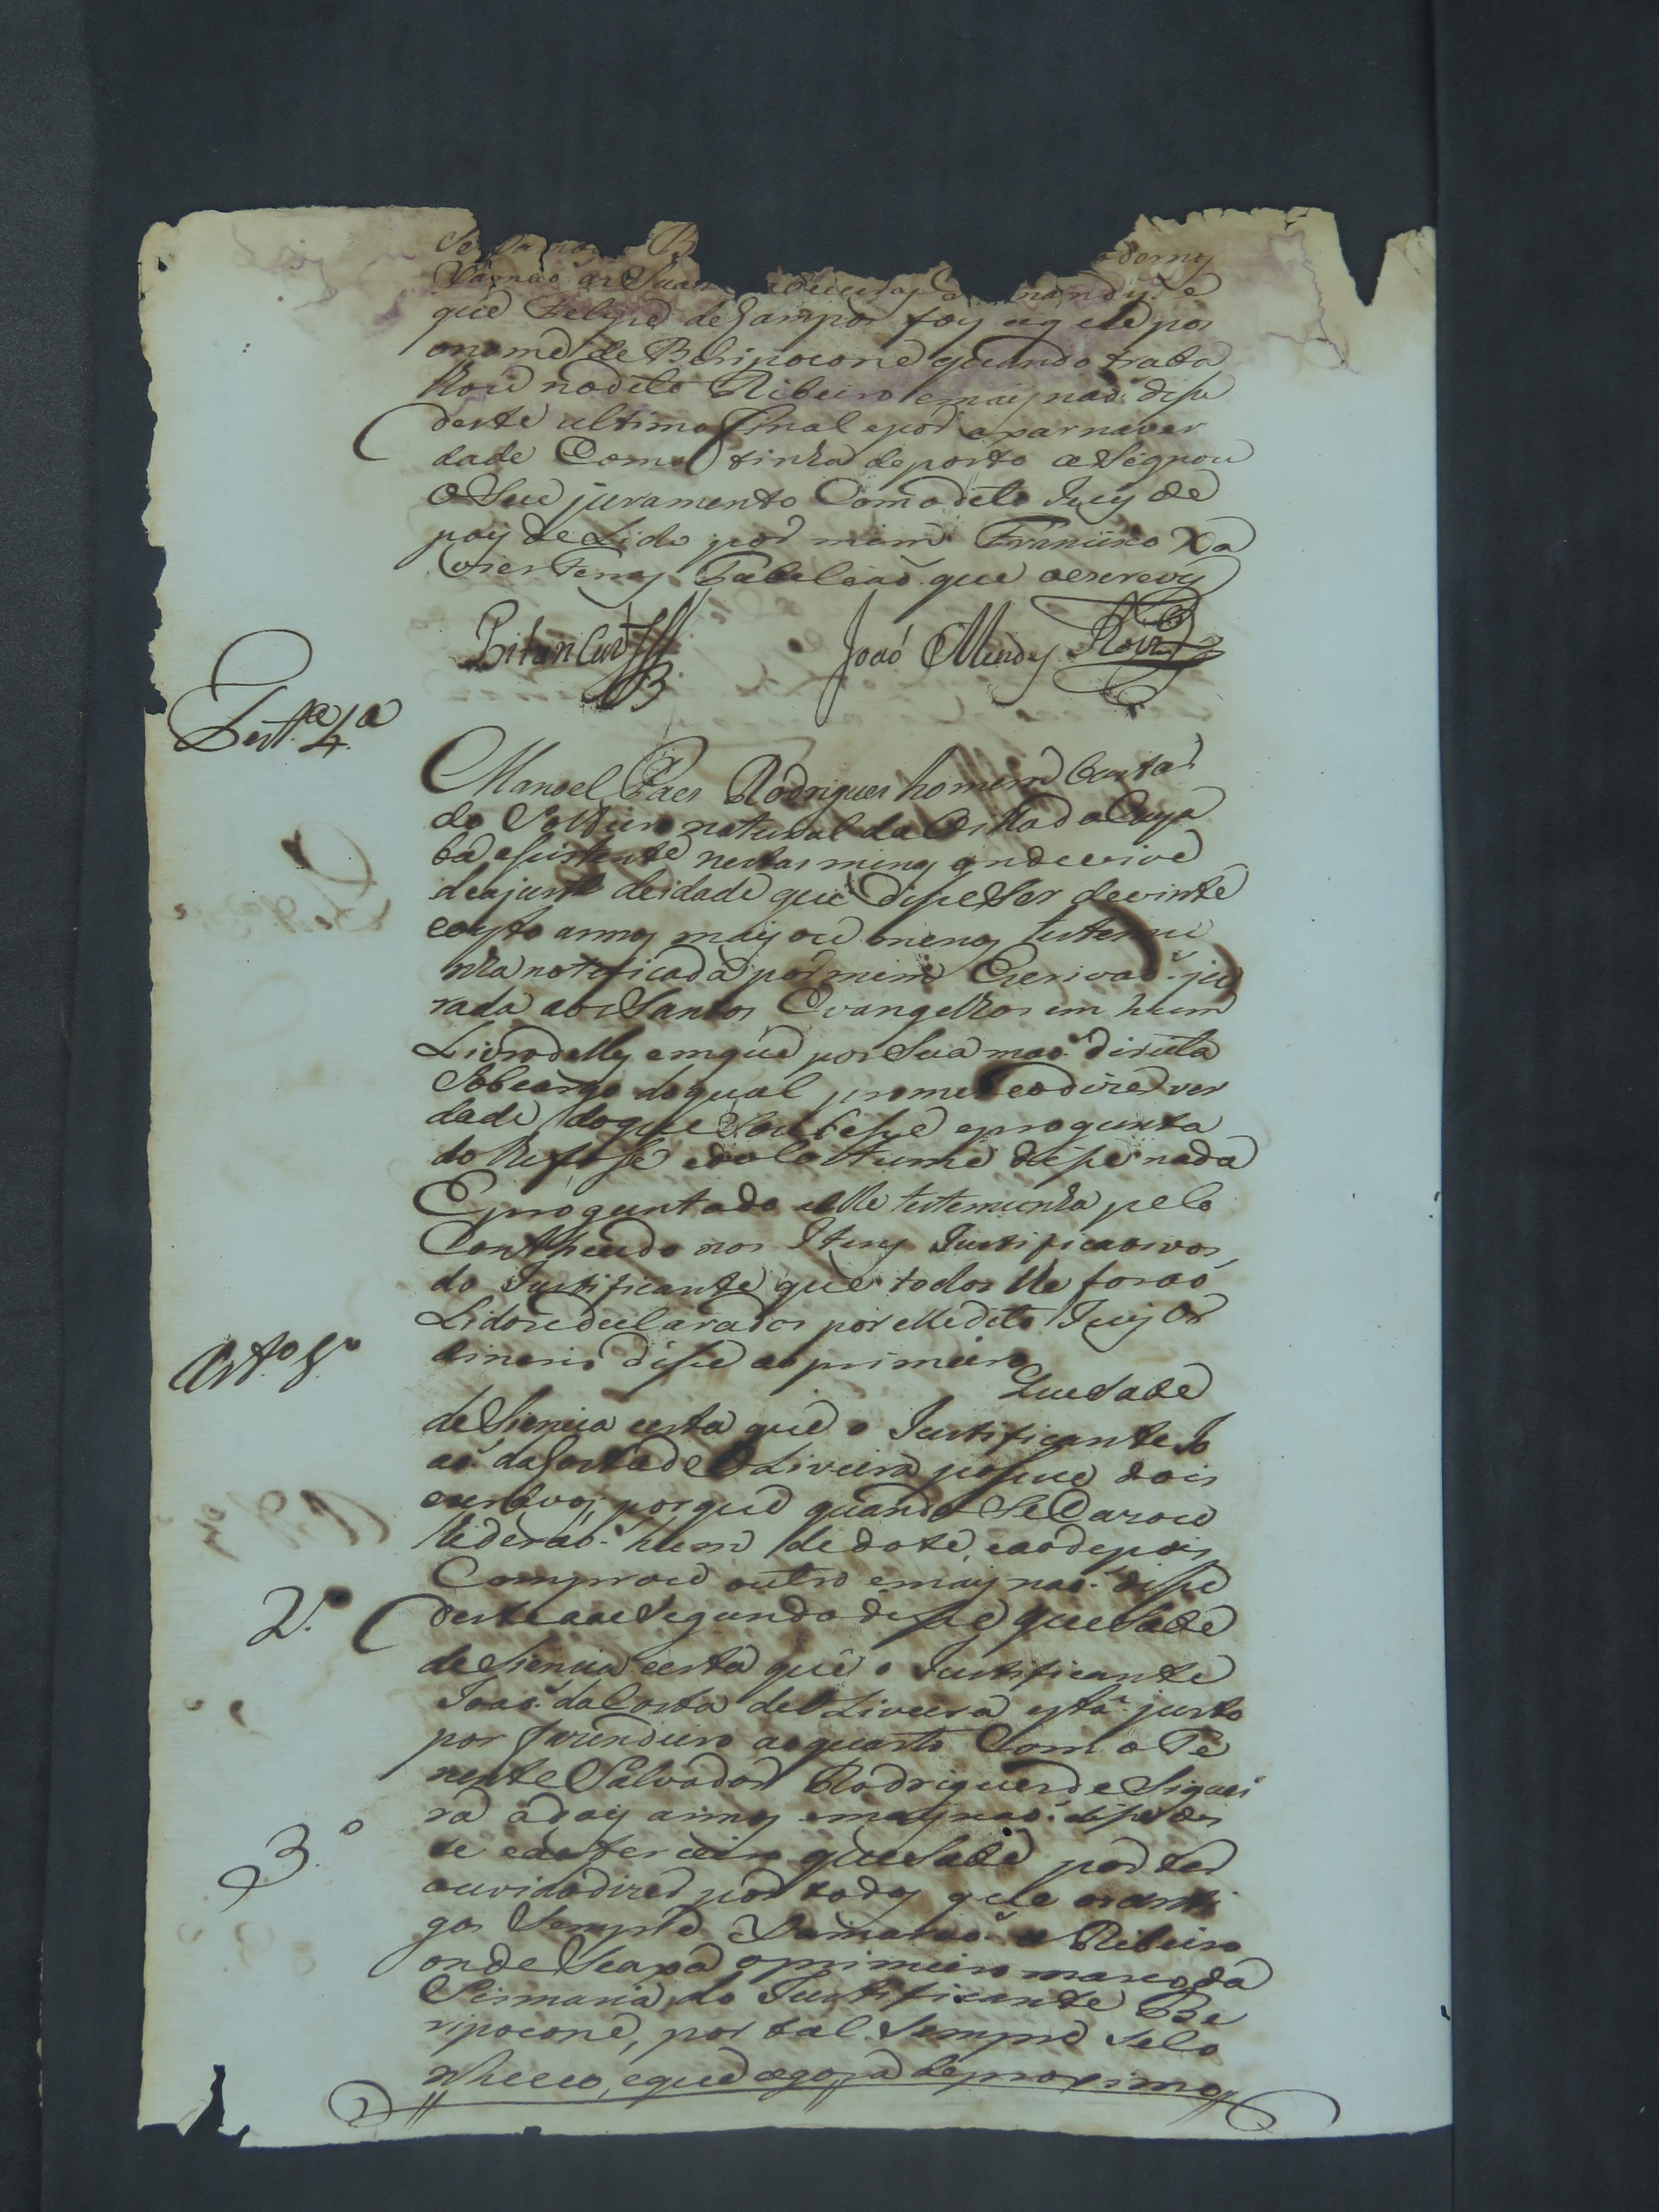 que Felype de Campos foy aquele pos
o nome de Beripocone quando traba
lhou no dito Ribeiro e mais naõ dise
deste ultimo final e por a par na ver
dade Como tinha deposto asignou
O Seu juramento Com o dito Juiz de
pois de Lido por mim Francisco Xa
vier Tabeliaõ que o escrevy
Bitancurt João Mendes Roiz
Test.ª 4.ª
Manoel Paes Rodrigues homem bastar
do Solteiro natural da Villa do Cuya
ba asistente nestas minas onde vive
de ajuste de idade que dise Ser de vinte
e oyto annos mais ou menos testemu
nha notificada por mim Escrivaõ ju
rada aos Santos Evangelhos em hum
Livro delles em que pos Sua maõ direita
Sob cargo do qual prometeo dizer ver
dade do que Soubese e proguntado
e do Costume dise nada
E proguntado elle testemunha pelo
Contheudo nos Itens Justificativos
do Justificante que todos lhe foraõ
Lidos e declarados por elle dito Juiz Or
dinario dise ao primeiro
Art.º 1.º
Que Sabe
de Siencia certa que o Justificante Jo
aõ da Costa de Oliveira posue dois
escravos, porque quando Se Cazou
lhe deraõ hum de dote, e ao depois
Comprou outro e mais naõ dise
2.º
deste e ao Segundo dise que Sabe
de Siencia certa que o Justificante
Joaõ da Costa de Oliveira está justo
por fazendeiro ao quarto Com o Te
nente Salvador Rodrigues de Siquei
ra a dois annos e mais naõ dise des
3.º
te e ao terceiro que Sabe por ter
ouvido dizer por todos que os anti
gos Sempre Xamaraõ o Ribeiro
onde Se axa o primeiro marco da
Sismaria do Justificante Be
ripocone, por tal Sempre Se co
nheceo, e que agora de proximo